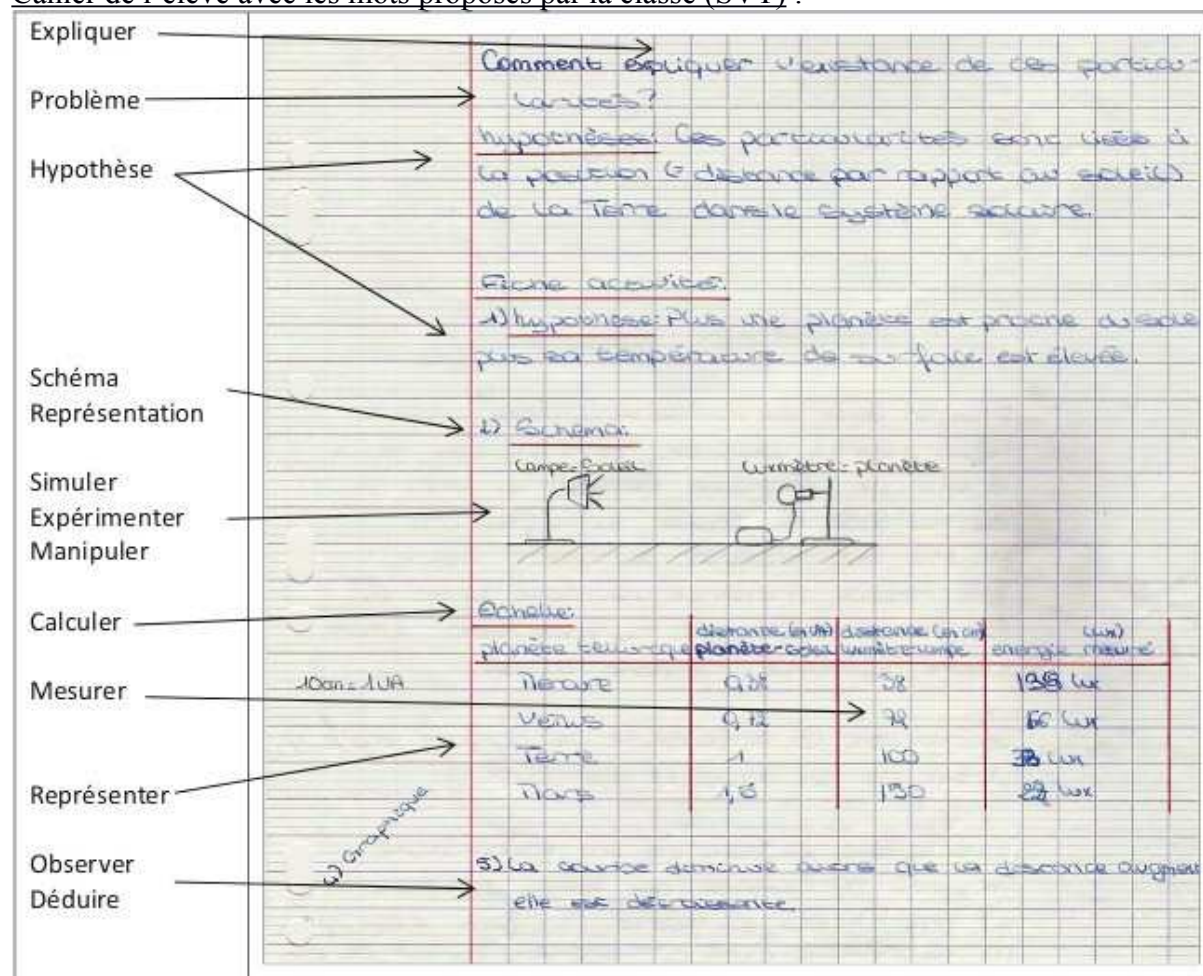 Cahier de l'élève avec les mots proposés par la classe (SVT) :
Expliquer
Problème
Hypothèse
Schéma
Représentation
Simuler
Expérimenter
Manipuler
Calculer
Mesurer
Représenter
Observer
Déduire
Comment expliquer l'existance de ces particu-
larités?
hypothèses: Ces particularités sont liées à
la position (= distance par rapport au soleil)
de la Terre dans le système solaire.
Fiche activité:
1) hypothèse: Plus une planète est proche du
plus sa température de surface est élevée.
2) Schéma:
Lampe=Soleil
Luxmètre=planète
Echelle:
planète tellurique
distance (en UA) planète-soleil
distance (en cm) luxmètre-lampe
énergie (lux)
=1UA
Mercure 0,38 38 lux
Vénus 0,72 lux
Terre 1 100 lux
Mars lux
4) Graphique
La courbe diminue alors que la distance augment
elle est décroissante.